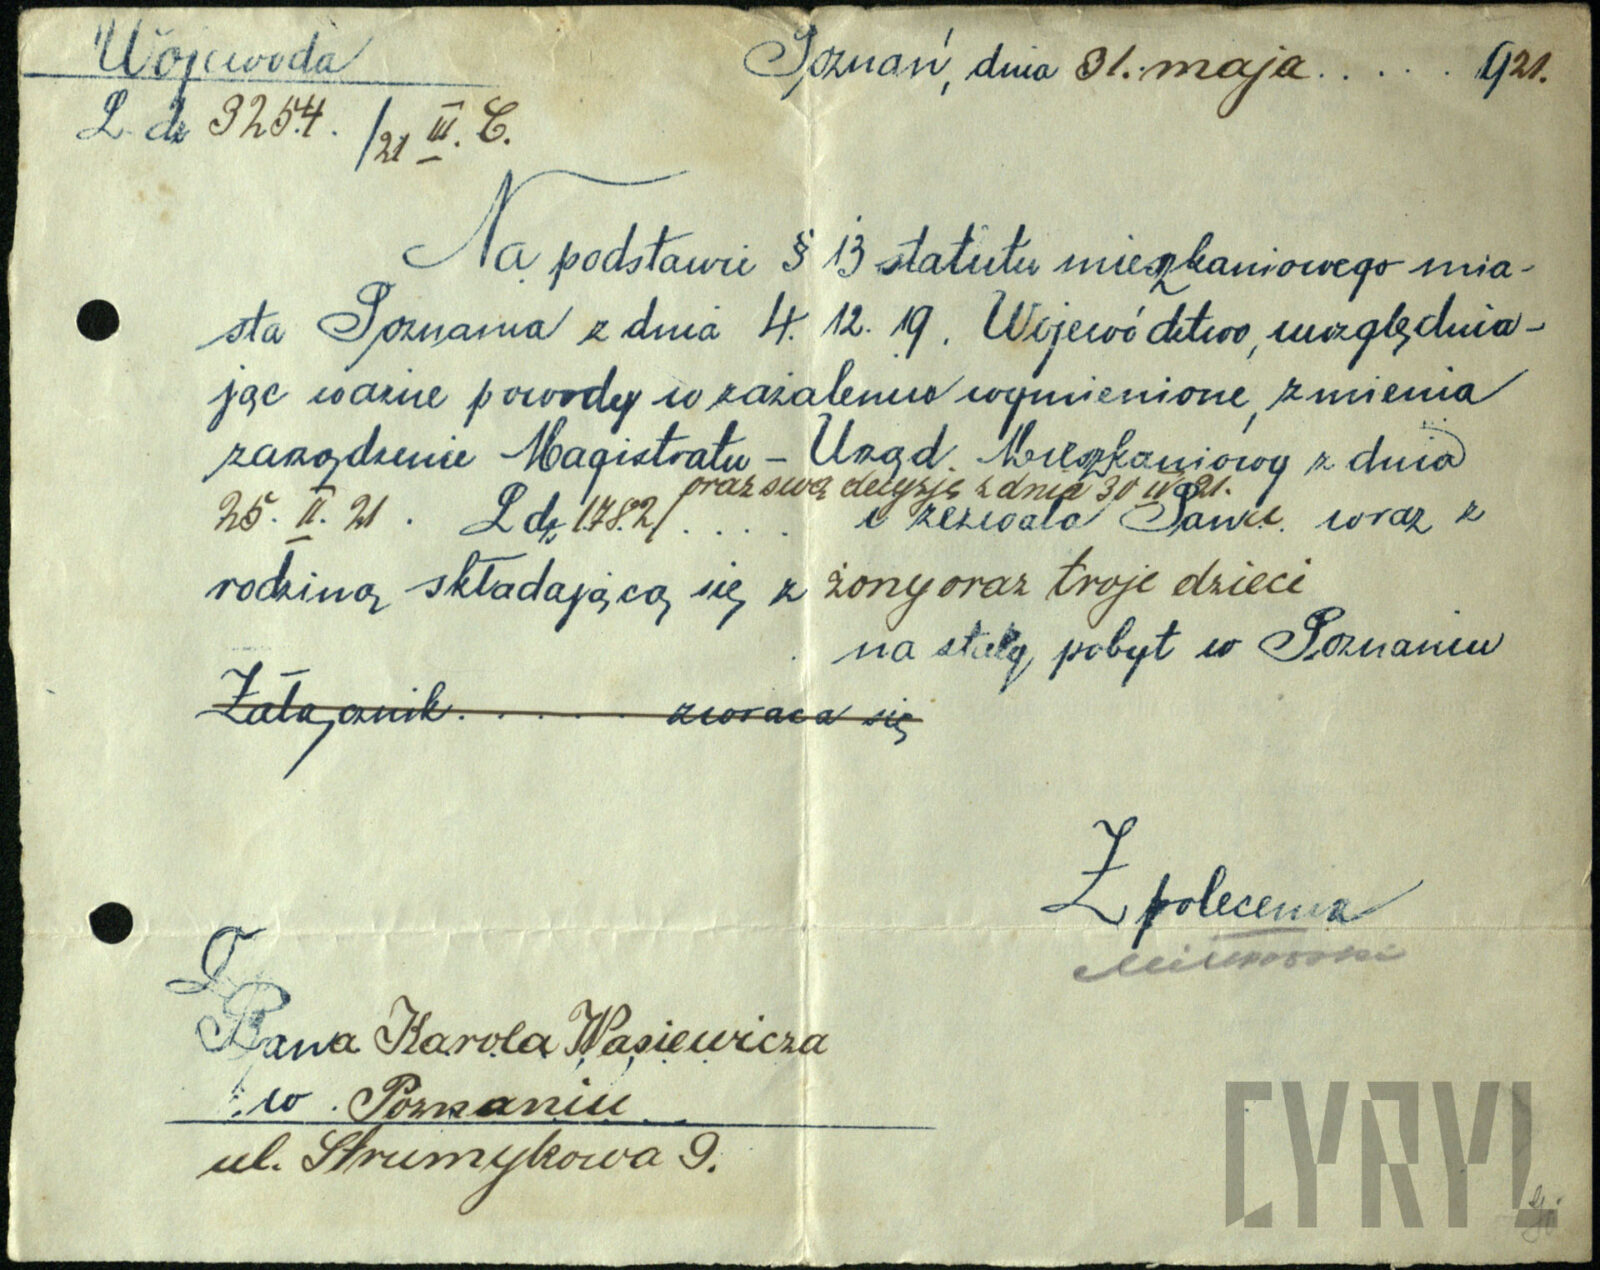 Wojewoda
Poznań, dnia 31. maja . . . . . 1921.
L. dz 3254. /21 III. C.
Na podstawie § 13 statutu mieszkaniowego mia-
sta Poznania z dnia 4. 12. 19. Województwo, uwzględnia-
jąc ważne powody w zażaleniu wymienione, zmienia
zarządzenie Magistratu - Urząd Mieszkaniowy z dnia
oraz swą decyzję z dnia 30 IV 21.
25. II. 21. L dz 1782/ . . . . i zezwala Panu wraz z
rodziną składającą się z żony oraz troje dzieci
na stały pobyt w Poznaniu
Załącznik . . . . . . zwraca się
Z polecenia
Do
Pana Karola Wasiewicza
w Poznaniu
ul. Strumykowa 9.
CYRYL